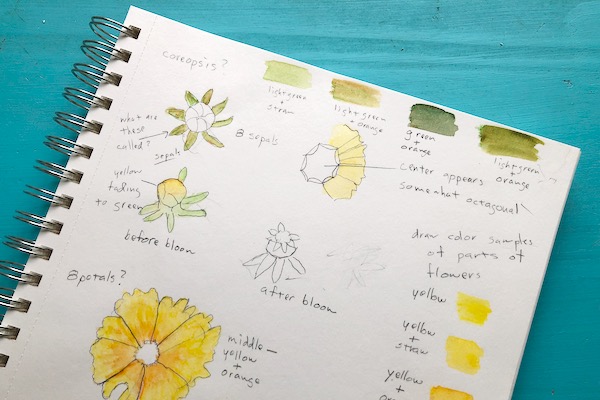 coreopsis?
light green
+
straw
light green
+
orange
green
+
orange
light green
+
orange
what are
these
called?
sepals
8 sepals
center appears
somewhat octagonal
yellow
fading
to green
before bloom
after bloom
draw color samples
of parts of
flowers
8 petals?
middle—
yellow
+
orange
yellow
yellow
+
straw
yellow
+